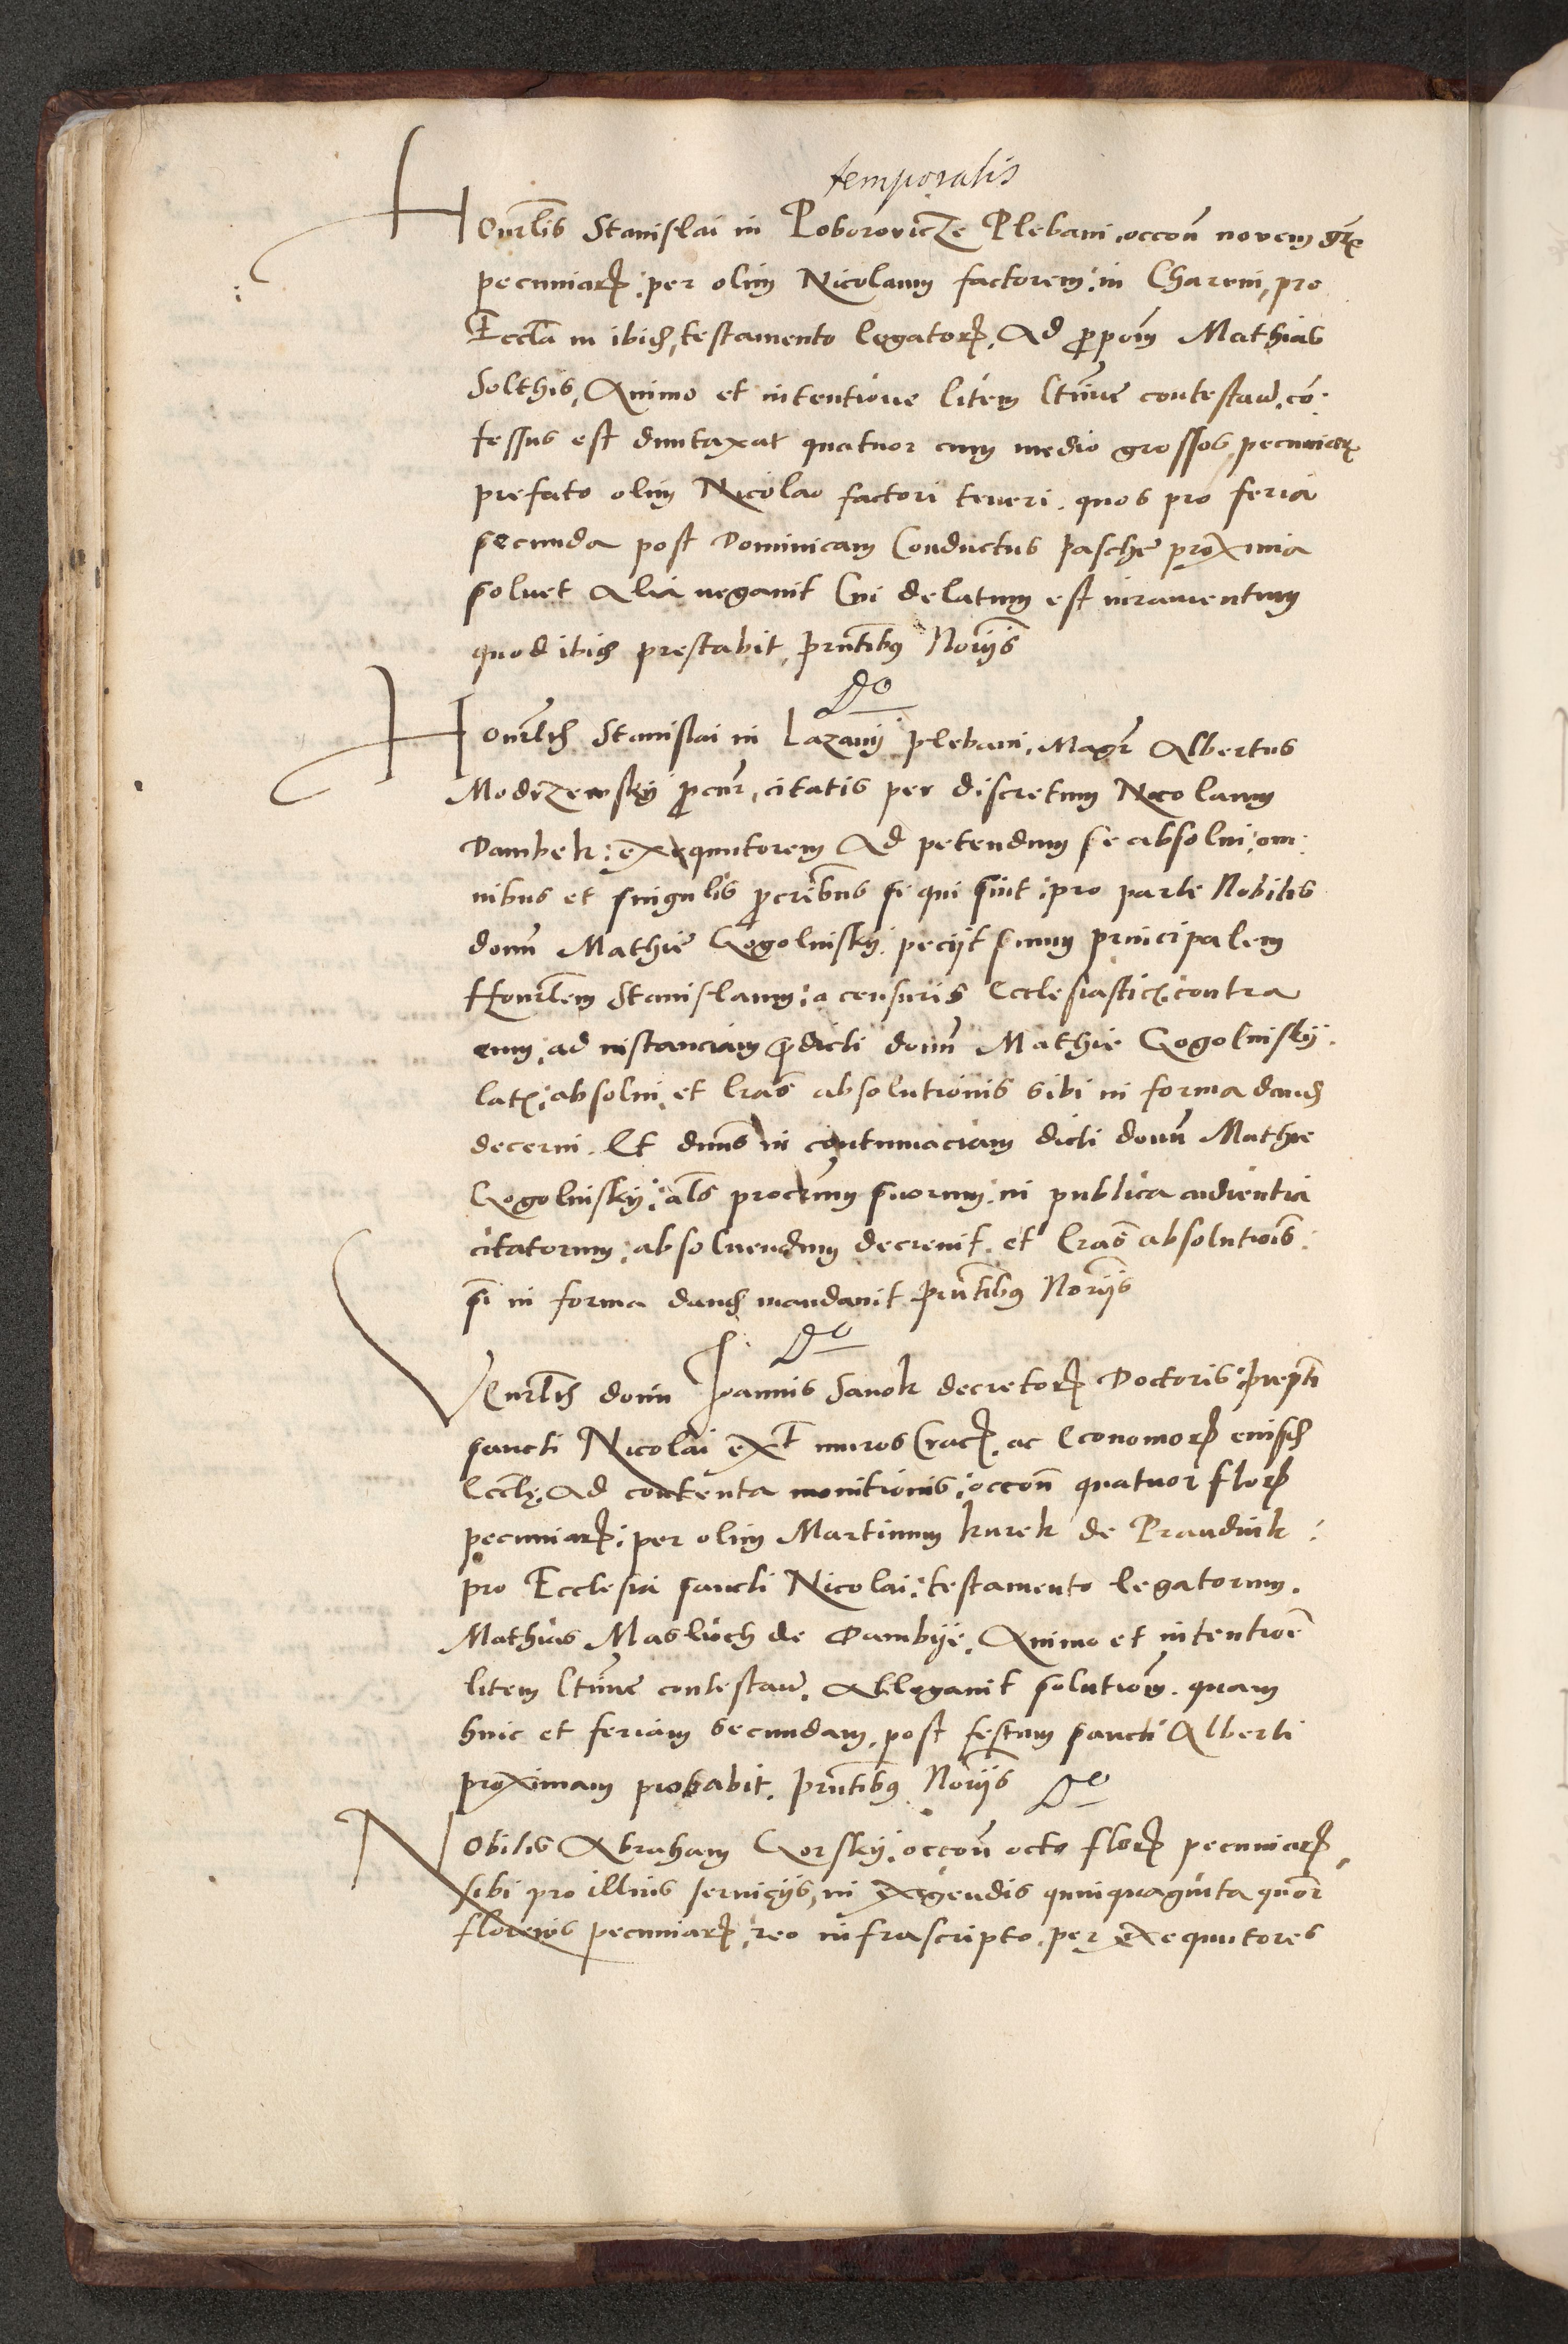 temporalis
Honrlis Stanislai in Poborovicze Plebani, occon novem gr
pecuniar: per olim Nicolaum factorem: in Charvin, pro
Eccla in ibid, testamento legator. Ad ppom Mathias
Solthis, Animo et intentione litem ltime contestan. con-
fessus est duntaxat quatuor cum medio grossos pecuniar
prefato olim Nicolao factori teneri. quos pro feria
secunda post Dominicam Conductus Pasche proxima
soluet Alia negauit Cui delatum est iuramentum
quod ibid prestabit, Prntibus Noriis
Do
Honrlis Stanislai in Lazany plebani, Magr Albertus
Modrzewsky pcur, citatis per discretum Nicolaum
Dambek: exequutorem Ad petendum se absolui: om-
nibus et singulis pcribus si qui sint: pro parte Nobilis
domi Mathie Gogolinsky. peciit suum principalem
Honrlem Stanislaum: a censuris Ecclesiastic: contra
eum, ad instanciam pdicti domi Mathie Gogolinsky.
lat: absolui, et lras absolutionis sibi in forma dand
decerni. Et dnus in contumaciam dicti domi Mathie
Gogolinsky: als procrum suorum: in publica audientia
citatorum: absoluendum decreuit. et lras absolutiois:
si in forma dand mandauit Prntibus Noriis
Do
Venrlis domi Joannis Sanok decretor Doctoris: prepti
sancti Nicolai ext muros Crac. ac Economor eiusd
Eccle. ad contenta monitionis: occon quatuor flor
pecuniar: per olim Martinum kurek de Prandnik:
pro Ecclesia sancti Nicolai: testamento legatorum.
Mathias Masloch de Dambye. Animo et intentioe
litem ltime contestan. Allegauit solutiom. quam
hinc et feriam secundam, post festum sancti Alberti
proximam probabit. Prntibus Noriis Do
Nobilis Abraham Gorsky: occon octo flor pecuniar,
sibi pro illius seruiciis, in exigendis quinquaginta quor
florenis pecuniar, reo infrascripto, per exequutores